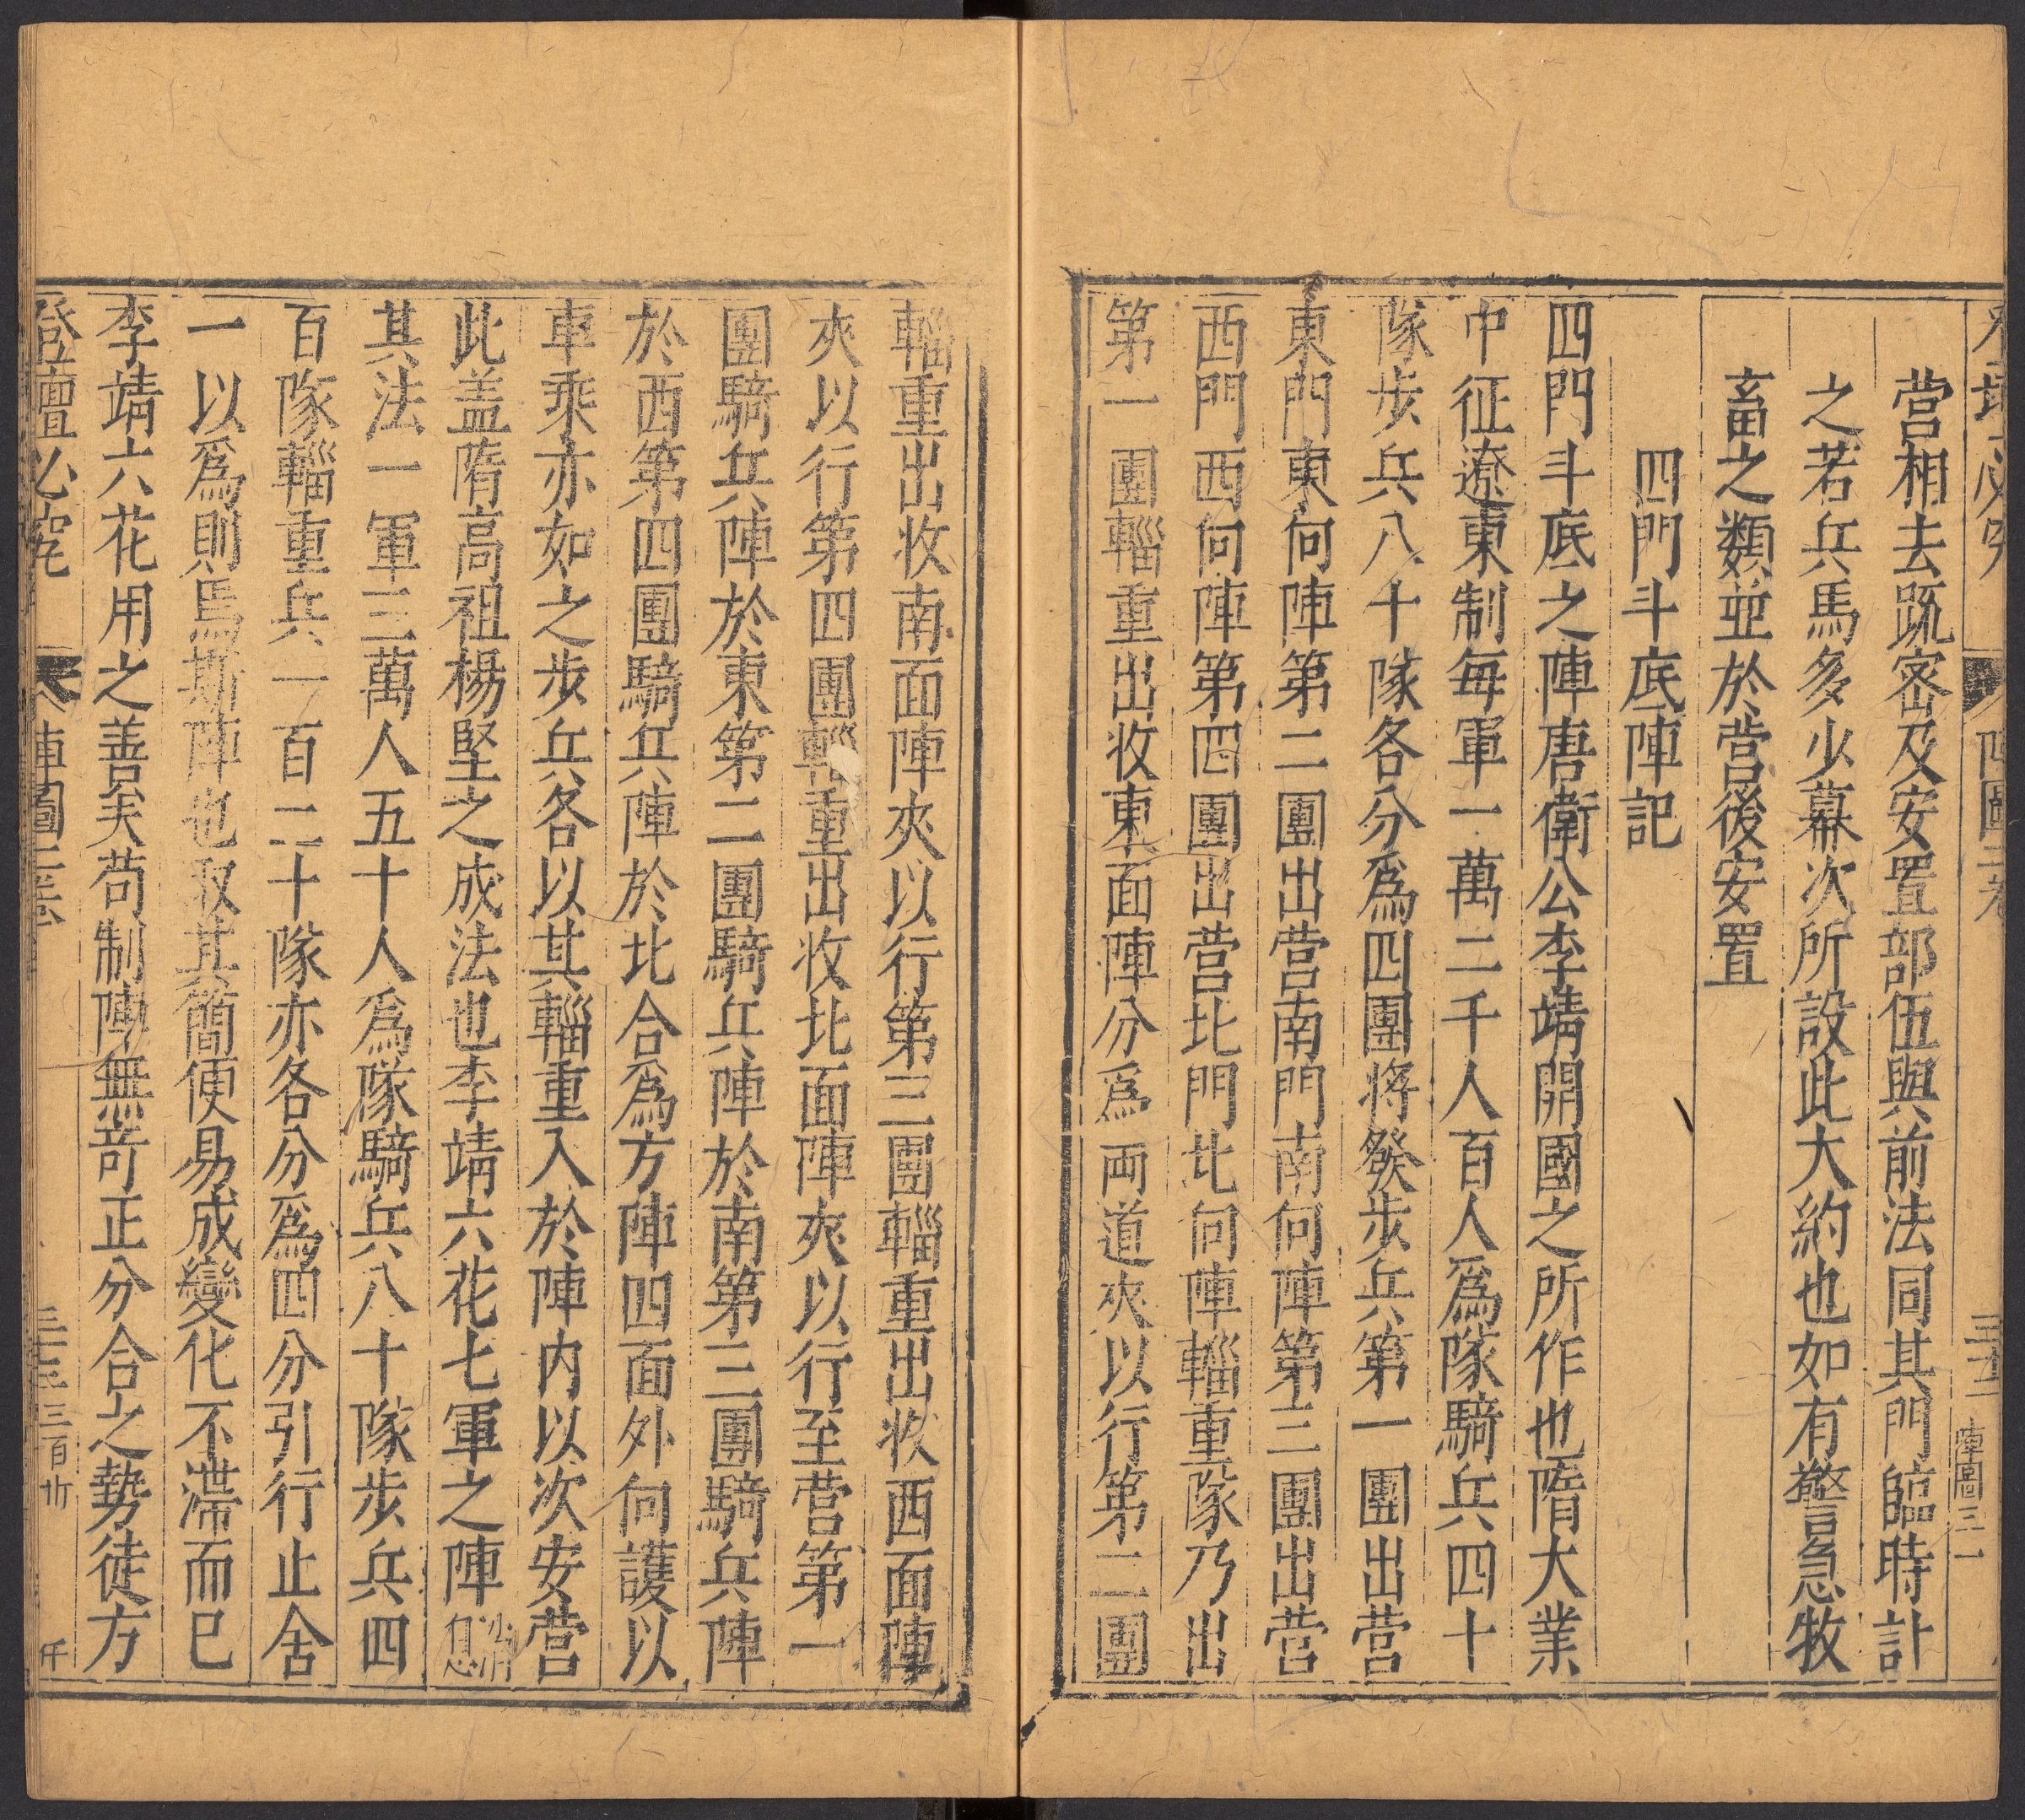 營相去䟽宻及安置部伍與前法同其門臨時計
之若兵馬多少幕次所設此大約也如有警急牧
畜之類並於營後安置
四門斗底陣記
四門斗底之陣唐衛公李靖開國之所作也隋大業
中征遼東制每軍一萬二千人百人爲隊騎兵四十
隊步兵八十隊各分爲四團將發步兵第一團出營
東門東向陣第二團出營南門南向陣第三團出營
西門西向陣第四團出營北門北向陣輜重隊乃出
第一團輜重出收東面陣分爲両道夾以行第二團
輜重出收南面陣夾以行第三團輜重出收西面陣
夾以行第四團輜重出收北面陣夾以行至營第一
團騎兵陣於東第二團騎兵陣於南第三團騎兵陣
於西第四團騎兵陣於北合爲方陣四面外向護以
車乘亦如之步兵各以其輜重入於陣内以次安營
此盖隋高祖楊堅之成法也李靖六花七軍之陣
其法一軍三萬人五十人爲隊騎兵八十隊步兵四
百隊輜重兵一百二十隊亦各分爲四分引行止舍
一以爲則焉斯陣也取其簡便易成變化不滯而已
李靖六花用之善矣苟制陣無竒正分合之勢徒方
登壇必究 陣圖 三百卅